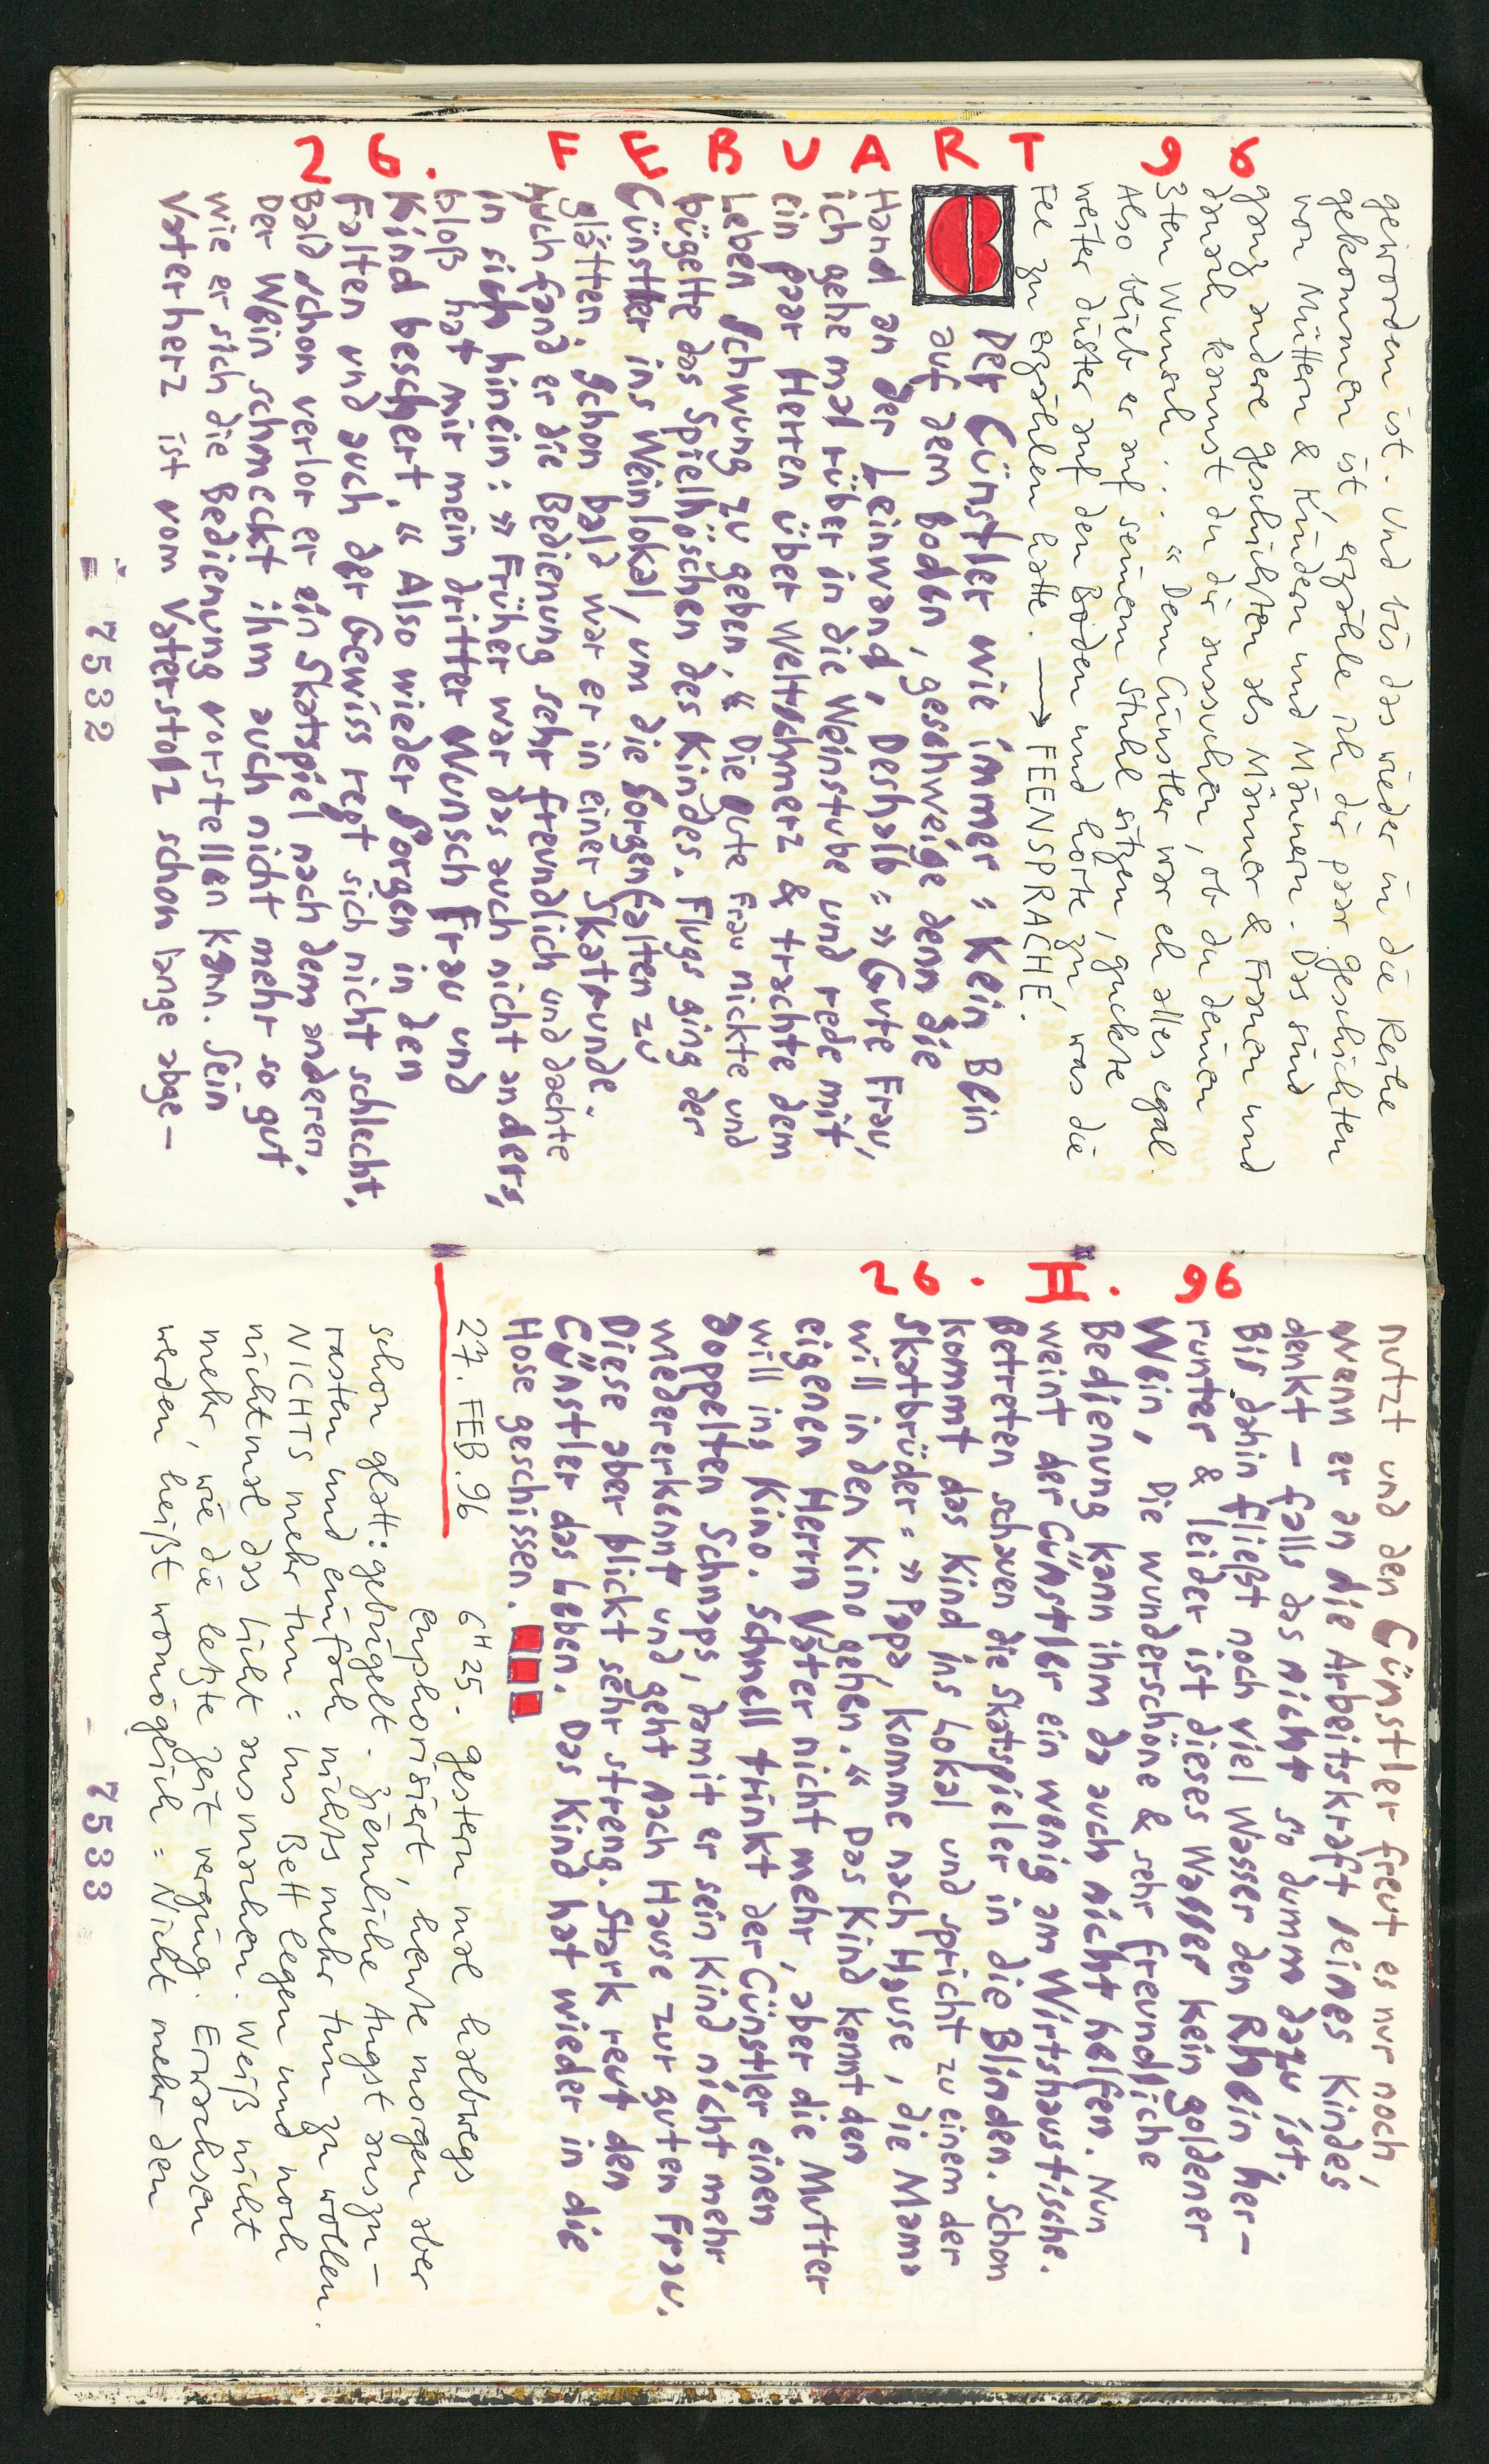 26. FEBUART 96
geworden ist. Und bis das wieder in die Reihe
gekommen ist, erzähle ich dir paar Geschichten
von Müttern & Kindern und Männern. Das sind
ganz andere Geschichten als Männer & Frauen und
danach kannst du dir aussuchen, ob du deinen
3ten Wunsch ... « Dem Günstler war eh alles egal.
Also blieb er auf seinem Stuhl sitzen, guckte
weiter düster auf den Boden und hörte zu, was die
Fee zu erzählen hatte. → FEENSPRACHE.
Der Günstler wie immer: Kein Bein
auf dem Boden, geschweige denn die
Hand an der Leinwand, Deshalb: » Gute Frau,
ich gehe mal rüber in die Weinstube und rede mit
ein paar Herren über Weltschmerz & trachte dem
Leben Schwung zu geben.« Die gute Frau nickte und
bügelte das Spielhöschen des Kindes. Flugs ging der
Günstler ins Weinlokal, um die Sorgenfalten zu
glätten. Schon bald war er in einer Skatrunde.
Auch fand er die Bedienung sehr freundlich und dachte
in sich hinein: » Früher war das auch nicht anders,
bloß hat mir mein dritter Wunsch Frau und
Kind beschert.« Also wieder Sorgen in den
Falten und auch der Gewiss regt sich nicht schlecht.
Bald schon verlor er ein Skatspiel nach dem anderen.
Der Wein schmeckt ihm auch nicht mehr so gut,
wie er sich die Bedienung vorstellen kann. Sein
Vaterherz ist vom Vaterstolz schon lange abge-
7532
26. II. 96
nutzt und den Günstler freut es nur noch,
wenn er an die Arbeitskraft seines Kindes
denkt - falls das nicht so dumm dazu ist.
Bis dahin fließt noch viel Wasser den Rhein her-
runter & leider ist dieses Wasser kein goldener
Wein, Die wunderschöne & sehr freundliche
Bedienung kann ihm da auch nicht helfen. Nun
weint der Günstler ein wenig am Wirtshaustische.
Betreten schauen die Skatspieler in die Blinden. Schon
kommt das Kind ins Lokal und spricht zu einem der
Skatbrüder: » Papa, komme nach Hause, die Mama
will in den Kino gehen.« Das Kind kennt den
eigenen Herrn Vater nicht mehr, aber die Mutter
will ins Kino. Schnell trinkt der Günstler einen
doppelten Schnaps, damit er sein Kind nicht mehr
wiedererkennt und geht nach Hause zur guten Frau.
Diese aber blickt sehr streng. Stark reut den
Günstler das Leben. Das Kind hat wieder in die
Hose geschissen.
27. FEB. 96
6H25. gestern mal halbwegs
euphorisiert, heute morgen aber
schon glatt: gebügelt. Ziemliche Angst auszu-
rasten und einfach nichts mehr tun zu wollen.
NICHTS mehr tun: Ins Bett legen und noch
nichtmal das Licht ausmachen. Weiß nicht
mehr, wie die letzte Zeit verging. Erwachsen
werden, heißt womöglich: Nicht mehr den
7533